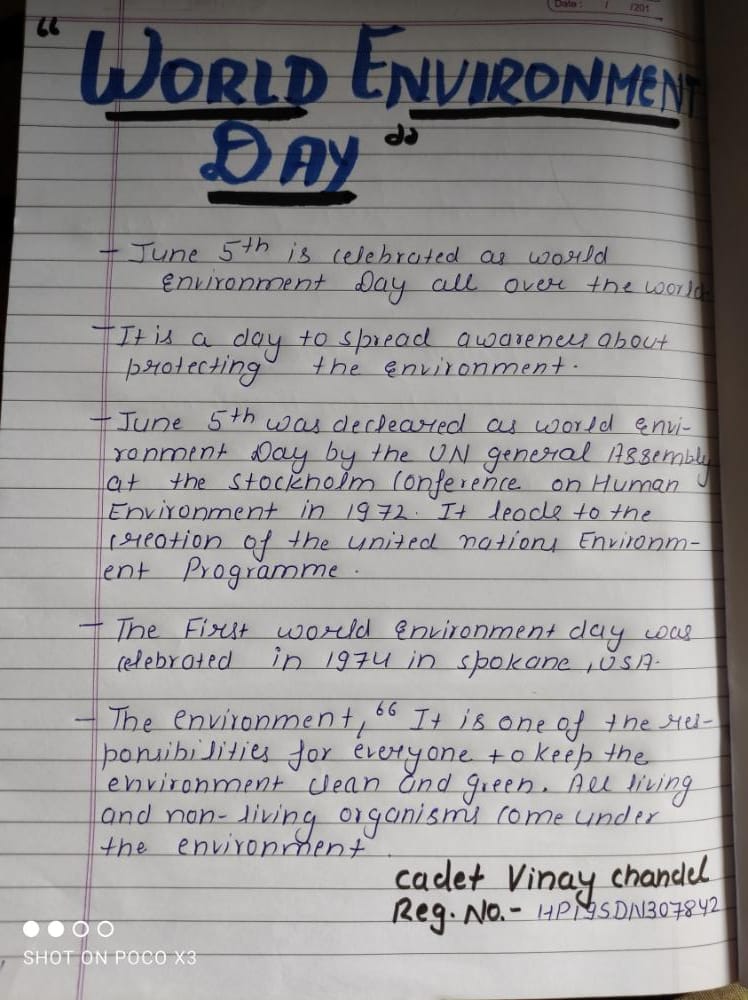 Date : / /201
“ WORLD ENVIRONMENT
DAY ”
- June 5th is celebrated as world
Environment Day all over the world
- It is a day to spread awareness about
protecting the environment.
- June 5th was decleared as world Envi-
ronment Day by the UN general Assembly
at the Stockholm Conference on Human
Environment in 1972. It leade to the
creation of the united nations Environm-
ent Programme.
- The First world Environment day was
celebrated in 1974 in spokane, USA.
- The environment, “ It is one of the res-
ponsibilities for everyone to keep the
environment clean and green. All living
and non-living organisms come under
the environment
cadet Vinay chandel
Reg. No.- HP19SDN307842
SHOT ON POCO X3